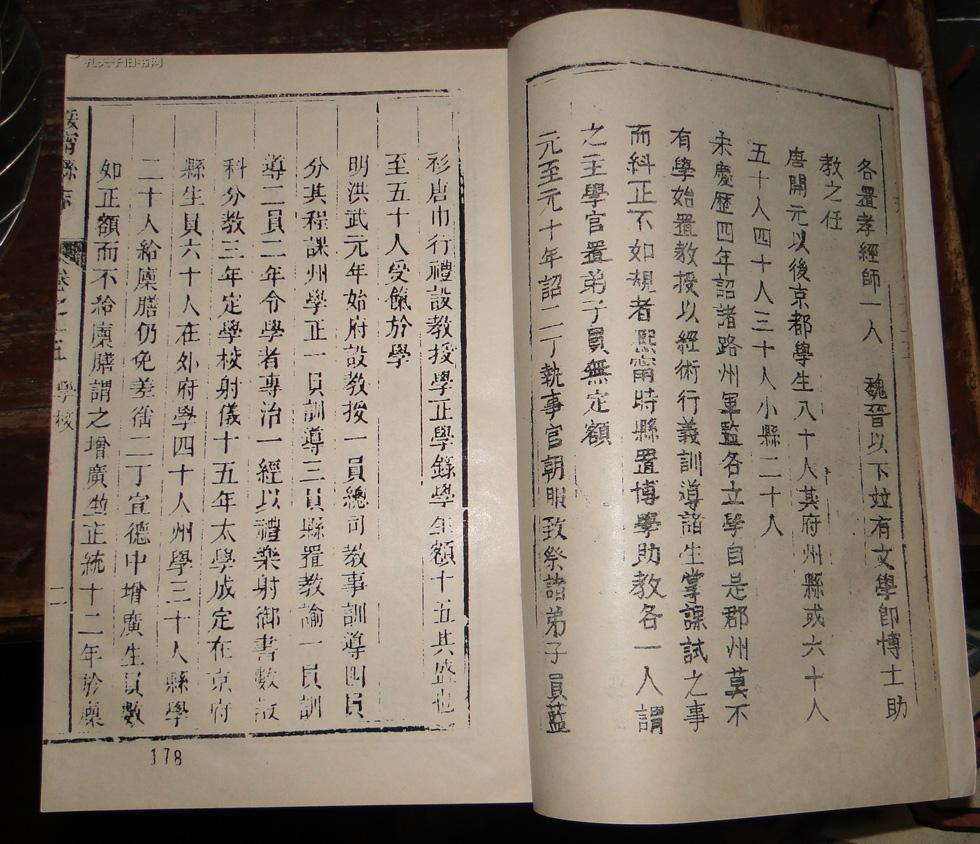 各置孝經師一人　魏晉以下竝有文學卽博士助
教之任
唐開元以後京都學生八十人其府州縣或六十人
五十人四十人三十人小縣二十人
宋慶歷四年詔諸路州軍監各立學自是郡州莫不
有學始置教授以經術行義訓導諸生掌課試之事
而糾正不如規者熙甯時縣置博學助教各一人謂
之主學官置弟子員無定額
元至元十年詔二丁執事官朝服致祭諸弟子員藍
衫唐巾行禮設教授學正學錄學年額十五其盛也
至五十人受餼於學
明洪武元年始府設教授一員總司教事訓導四員
分其程課州學正一員訓導三員縣置教諭一員訓
導二員二年令學者專治一經以禮樂射御書數設
科分教三年定學校射儀十五年太學成定在京府
縣生員六十人在外府學四十人州學三十人縣學
二十人給廩膳仍免差徭二丁宣德中增廣生員數
如正額而不給廩膳謂之增廣生正統十二年於廩
縣志
卷之五　學校　二
178
孔夫子旧书网